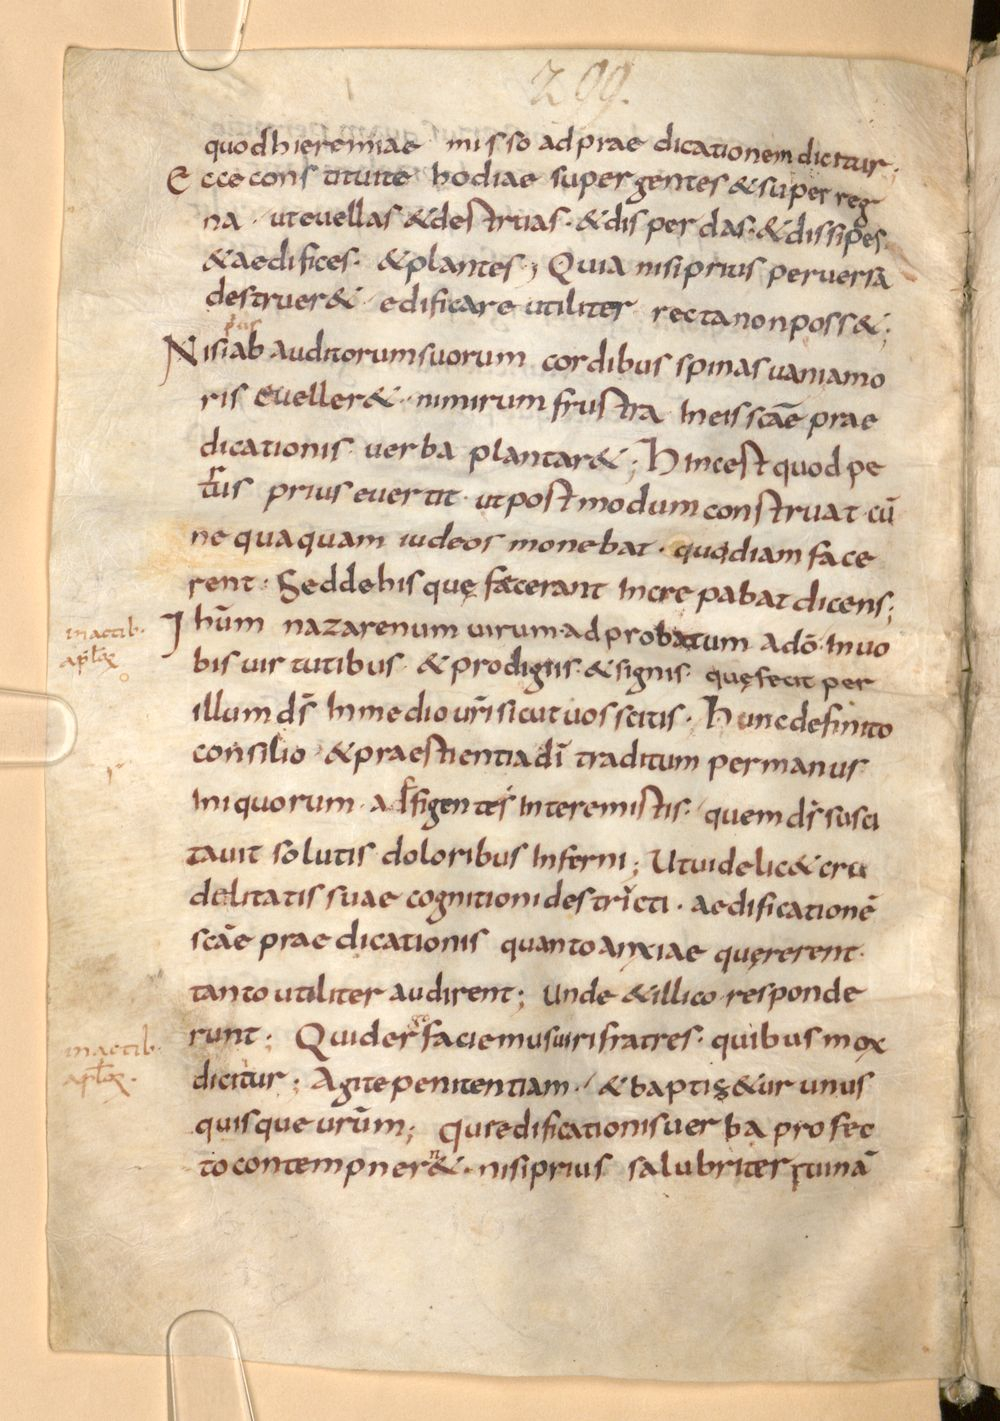 299.
quod hieremiae misso ad prae dicationem dicitur;
Ecce constituite hodiae super gentes & super reg
na · ut evellas & destruas · & disperdas · & dissipes ·
& aedifices · & plantes ; Quia nisi prius perversa
destruer& edificare utiliter recta non poss& ;
prius
Nisi ab auditorum suorum cordibus spinas vani amo
ris eveller& · nimirum frustra In eis scāe prae
dicationis verba plantar& ; Hinc est quod pe
trus prius evertit · ut postmodum construat · cū
nequaquam iudeos monebat · quod iam face
rent · Sed de his quę faecerant Increpabat dicens ;
in actib·
aplōr
Ihūm nazarenum virum adprobatum a dō · In vo
bis virtutibus · & prodigiis · & signis · quę fecit per
illum ds̄ In medio ur̄i sicut vos scitis · Hunc definito
consilio & praestientia dī traditum per manus
Iniquorum · adfigentes Interemistis · quem ds̄ susci
tavit solutis doloribus Inferni ; Ut videlic& cru
delitatis suae cognitioni destricti · aedificationē
scāe praedicationis quanto anxiae quęrerent ·
tanto utiliter audirent ; Unde & illico responde
runt ; Quid er̄ faciemus viri fratres · quibus mox
in actib·
aplōr ·
dicitur ; Agite penitentiam · & baptiz&ur unus
quisque urūm ; Qui edificationis verba profec
to contempner&n · nisi prius salubriter ruinā